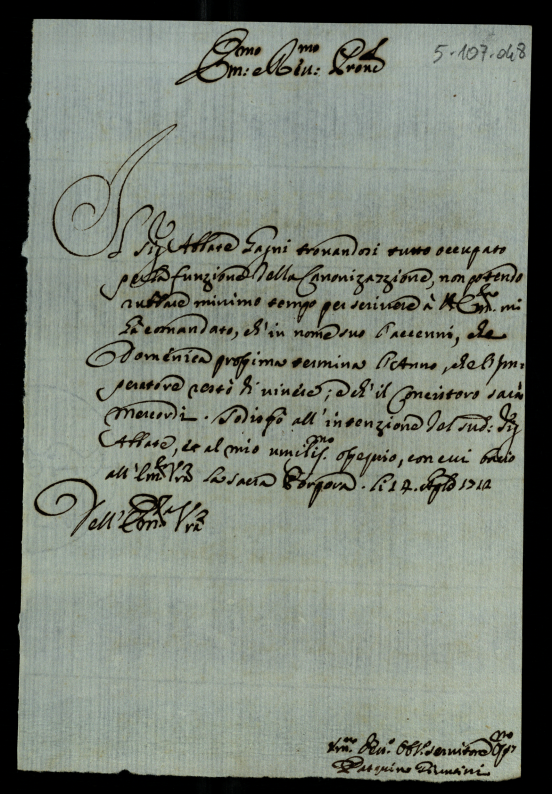 5-107-048
Em:mo e Riu:mo Prone
Il Sig.r Abbate Fagni trovandosi tutto occupato
per la funzione della Canonizazzione, non potendo
rubbare minimo tempo per scrivere à V. Em.za mi
hà comandato, ch'in nome suo l'accenni, che
Domenica prossima termina l'Anno, che l'Im-
peratore restò di vivere; e ch'il Concistoro sarà
Mercordì. Sodisfò all'intenzione del sud.o Sig.r
Abbate, et al mio umiliss.mo ossequio, con cui bacio
all'Em.za V.ra la sacra Porpora. li 14. Aplē 1712
Dell'Em.za V.ra
Um.mo Deu.mo Obl.mo servitore